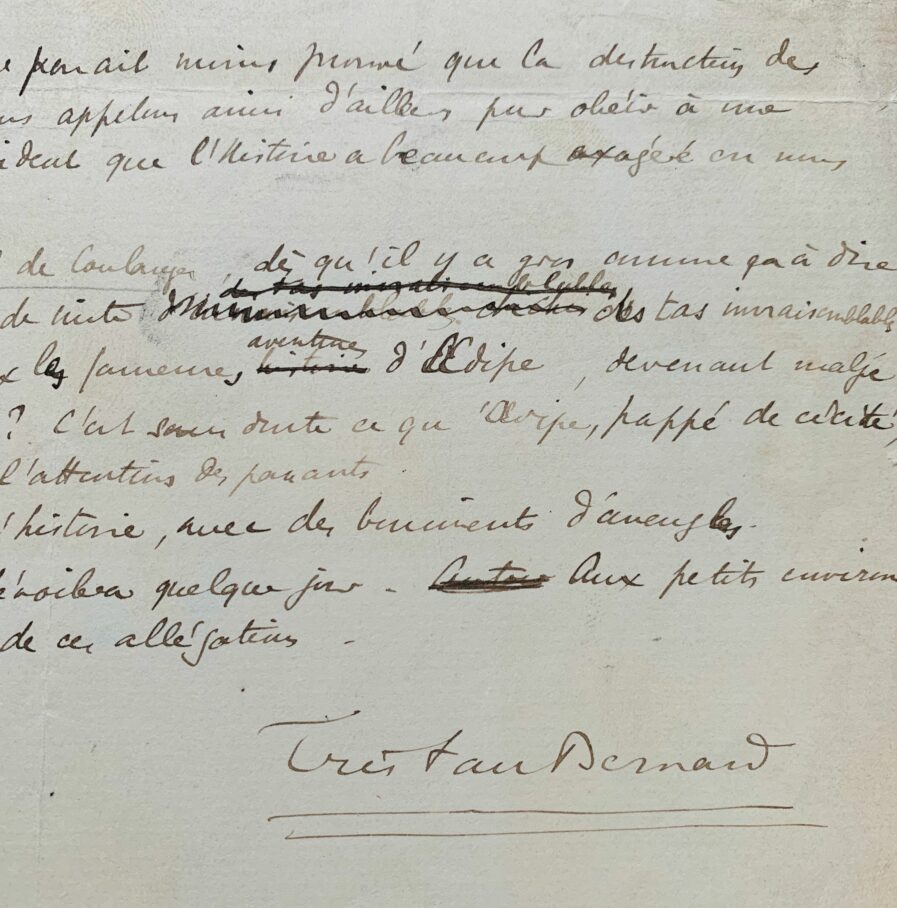 paraît moins prouvé que la destruction des
appelons ainsi d'ailleurs pour obéir à une
que l'Histoire a beaucoup exagéré en nous
de Coulanges, dès qu'il y a gros comme ça à dire
des tas invraisemblables
de suite des tas invraisemblables
aventures
les fameuses histoires d'Œdipe, devenant malgré
? C'est sans doute ce qu'Œdipe, frappé de cécité,
l'attention des passants.
l'histoire, avec des boniments d'aveugles.
dévoilera quelque jour. Autour Aux petits environ
de ces allégations.
Tristan Bernard